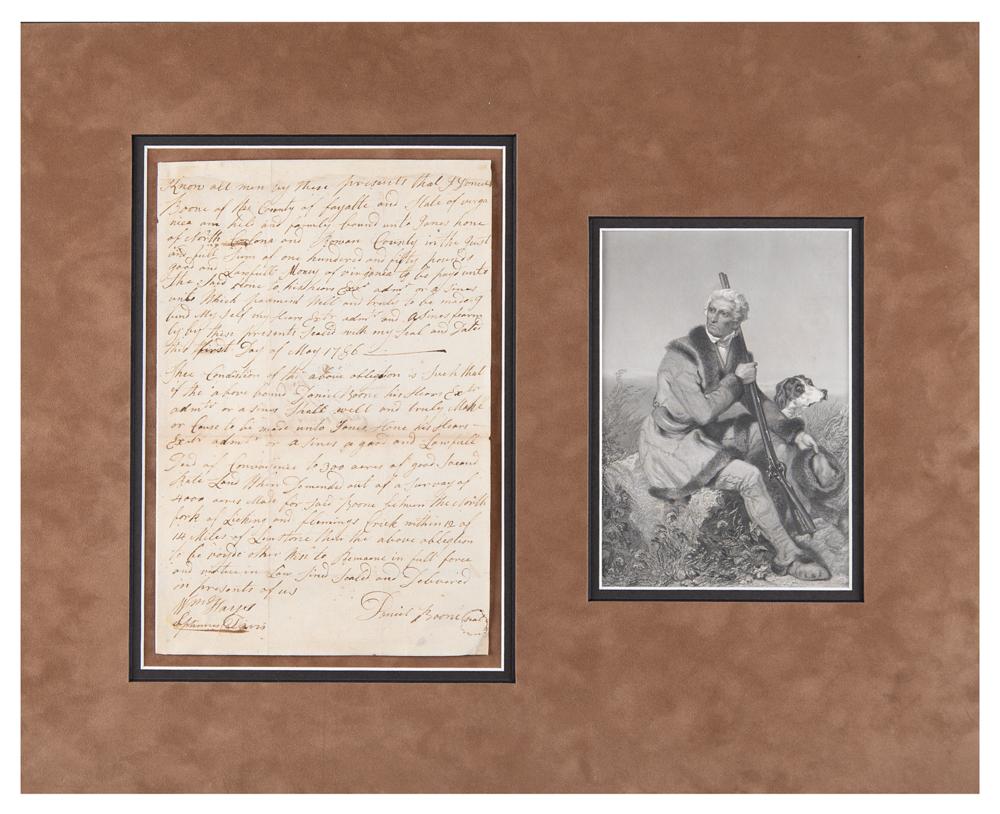 Know all men by these presents that I Daniel
Boone of the County of fayatte and State of virga
niea am held and firmly bound unto Jones hone
of North Calona and Rowan County in the Just
and full Sum of one hundred and fifty pounds
good and Lawfull Money of virganea to be payd unto
The Said hone to his hears Exrs admrs or a Sines
unto Which payment Well and truly to be made I
bind My Self my hears Exrs admrs and asines fearm
ly by these presents Sealed with my Seal and Dated
this first Day of May 1786
Thee Condition of the above obligtion is Such that
if the above bound Daniel Boone his hears Exrs
admrs or a sines Shall well and truly Make
or Cause to be made unto Jones hone his hears
Exrs admrs or a sines a good and Lawfull
Deed of Convaiance to 300 acres of good Second
Rate Land When Demanded out of a Survay of
4000 acres Made for Said Boone between the North
fork of Licking and flemings Creek within 12 or
14 Miles of Limstone then the above obligtion
to be voide other Wise to Remane in full force
and vertue in Law Sined Sealed and Delivered
in presents of us
Wm Hays
Septimus Davis
Daniel Boone Seal